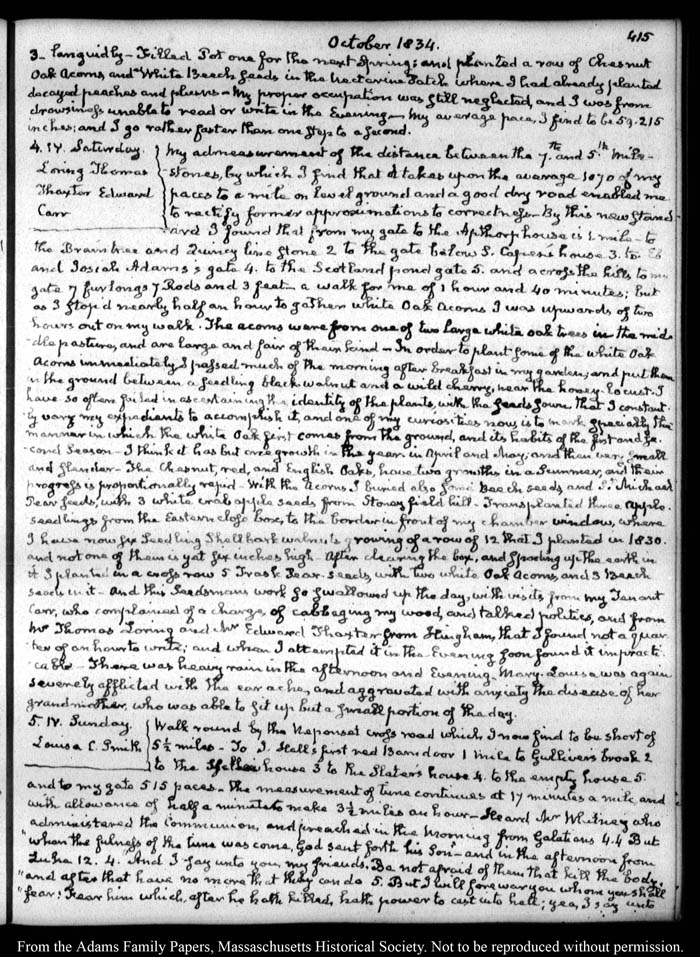 October 1834.
415
3_ languidly_ Filled Pot one for the next Spring; and planted a row of Chesnut
Oak Acorns, and White Beech seeds in the Nectarine Patch where I had already planted
decayed peaches and plums_ My proper occupation was still neglected, and I was from
drowsiness unable to read or write in the Evening_ My average pace, I find to be 59.215
inches; and I go rather faster than one step to a second.
4. IV. Saturday.
Loring Thomas
Thaxter Edward
Carr
My admeasurement of the distance between the 7th and 5th Mile-
-stones, by which I find that it takes upon the average 1070 of my
paces to a mile on level ground and a good dry road enabled me
to rectify former approximations to correctness. By this new stand-
-ard I found that from my gate to the Apthorp house is 1 mile_ to
the Braintree and Quincy line stone 2 to the gate below S. Capen's house 3. to
and Josiah Adams's gate 4. to the Scotland pond gate 5. and across the hills to my
gate 7 furlongs 7 Rods and 3 feet_ a walk for me of 1 hour and 40 minutes; but
as I stop'd nearly half an hour to gather white Oak Acorns I was upwards of two
hours out on my walk. The acorns were from one of two large white oak trees in the mid-
-dle pasture, and are large and fair of their kind_ In order to plant some of the White Oak
Acorns immediately I passed much of the morning after Breakfast in my garden, and put them
in the ground between a seedling black walnut and a wild cherry, near the honey-locust. I
have so often failed in ascertaining the identity of the plants, with the seeds sown, that I constant-
ly vary my expedients to accomplish it, and one of my curiosities now, is to mark specially, the
manner in which the white Oak first comes from the ground, and its habits of the first and se-
cond Season_ I think it has but one growth in the year. in April and May; and then very small
and slender_ The Chesnut, red, and English Oaks, have two growths in a Summer, and their
progress is proportionally rapid_ With the Acorns I buried also some Beech seeds and St. Michael
Pear seeds, with 3 white crab apple seeds from Stoney field hill_ Transplanted three Apple
seedlings from the Eastern close box, to the border in front of my chamber window, where
I have now six Seedling Shellbark walnuts growing of a row of 12 that I planted in 1830.
and not one of them is yet six inches high_ After clearing the box, and spading up the earth in
it I planted in a cross row 5 Trask Pear-seeds, with two white Oak Acorns, and 3 Beech
seeds in it_ And this Seedsman's work so swallowed up the day, with visits from my Tenant
Carr, who complained of a charge, of cabbaging my wood, and talked politics, and from
Mr Thomas Loring and Mr Edward Thaxter from Hingham, that I found not a quar-
ter of an hour to write; and when I attempted it in the Evening soon found it impracti-
-cable_ There was heavy rain in the afternoon and Evening. Mary-Louisa was again
severely afflicted with the ear ache, and aggravated with anxiety the disease of her
grandmother, who was able to sit up but a small portion of the day.
5. IV. Sunday.
Louisa C. Smith
Walk round by the Neponset cross road which I now find to be short of
5½ miles_ To J. Hall's first red Barn door 1 mile to Gulliver's brook 2
to the house 3 to the Slater's house 4. to the empty house 5
and to my gate 515 paces_ The measurement of time continues at 17 minutes a mile, and
with allowance of half a minute to make 3½ miles an hour_ Heard Mr Whitney who
administered the Communion, and preached in the Morning from Galatians 4.4 But
"when the fulness of the time was come, God sent forth his Son"_ and in the afternoon from
Luke 12. 4. And I say unto you, my friends, Be not afraid of them that kill the body,
"and after that have no more that they can do 5. But I will forewarn you whom you shall
"fear: Fear him which, after he hath killed, hath power to cast into hell; yea, I say unto
From the Adams Family Papers, Massachusetts Historical Society. Not to be reproduced without permission.